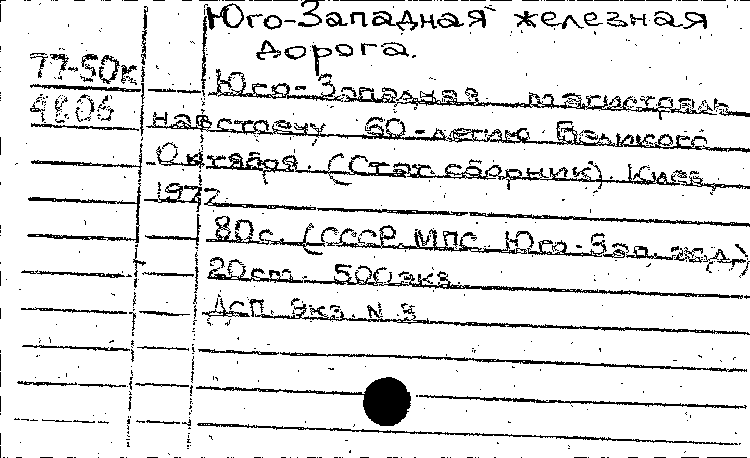 Юго-Западная железная
дорога.
77-50к
4806
Юго-Западная магистраль
навстречу 60-летию Великого
Октября. (Стат. сборник). Киев,
1977.
80с. (СССР. МПС. Юго-Зап. ж.д.)
20cm. 500экз.
Дсп. Экз. N 8